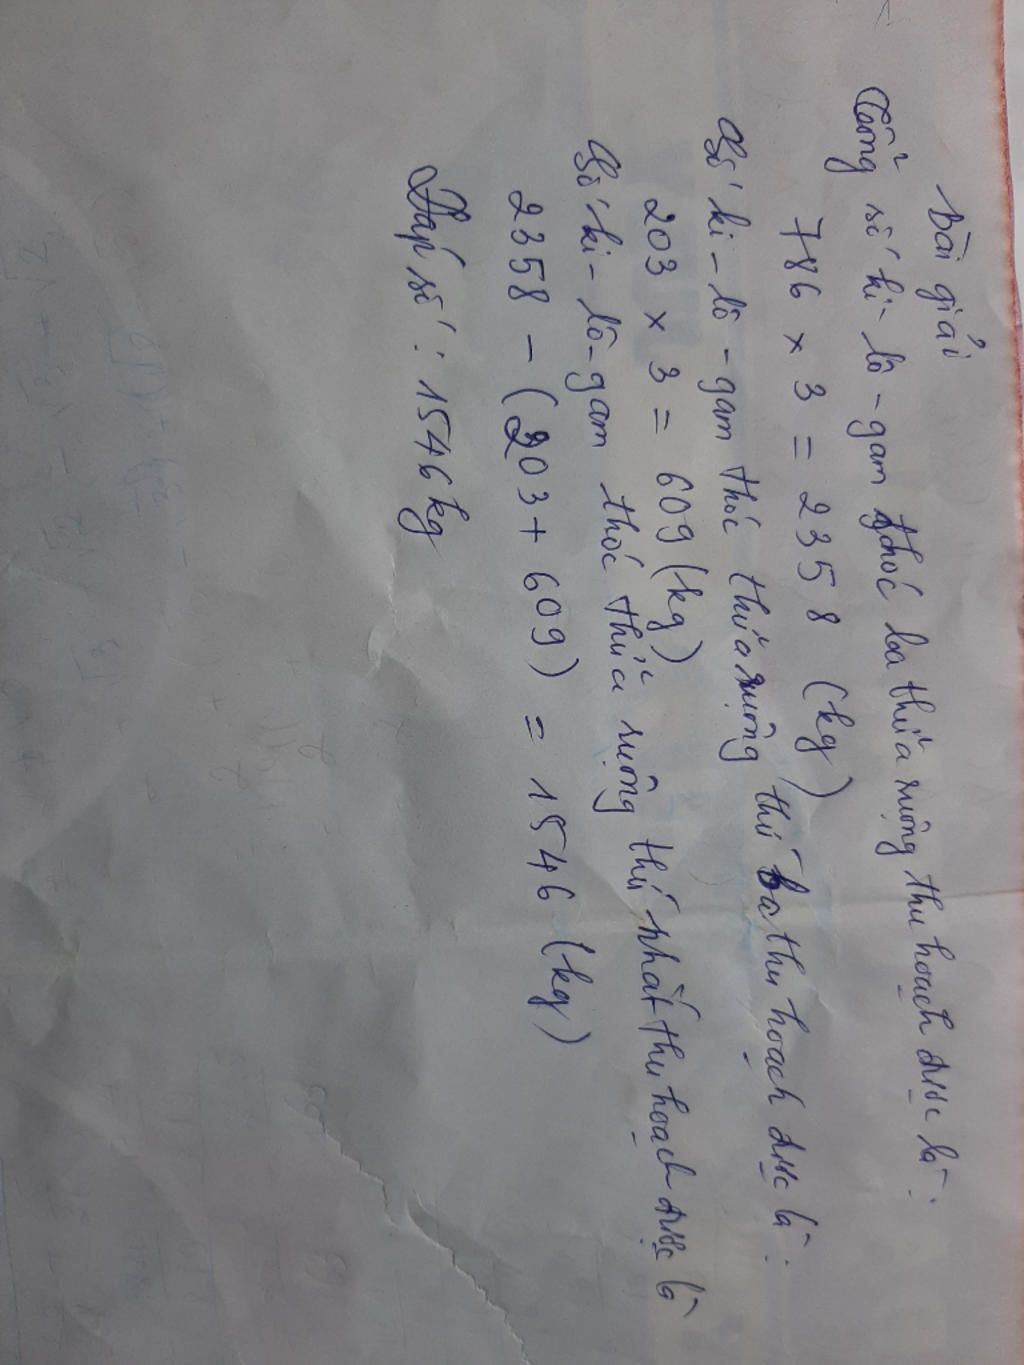 Bài giải
Tổng số ki-lô-gam thóc ba thửa ruộng thu hoạch được là:
786 × 3 = 2358 (kg)
Số ki-lô-gam thóc thửa ruộng thứ ba thu hoạch được là:
203 × 3 = 609 (kg)
Số ki-lô-gam thóc thửa ruộng thứ nhất thu hoạch được là
2358 - (203 + 609) = 1546 (kg)
Đáp số: 1546 kg